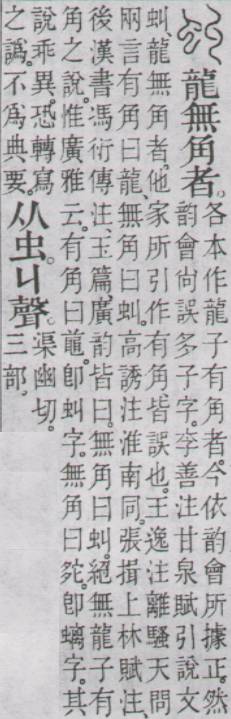 龍無角者。
各本作龍子有角者。今依韵會所據正。然
韵會尚誤多子字。李善注甘泉賦引說文
虯、龍無角者。他家所引作有角皆誤也。王逸注離騷天問
兩言有角曰龍、無角曰虯。高誘注淮南同。張揖上林賦注
後漢書馮衍傳注、玉篇、廣韵皆曰。無角曰虯。絕無龍子有
角之說。惟廣雅云。有角曰即虯字。無角曰即螭字。其
說乖異。恐轉寫
之譌。不爲典要。
从虫。丩聲。
渠幽切。
三部。